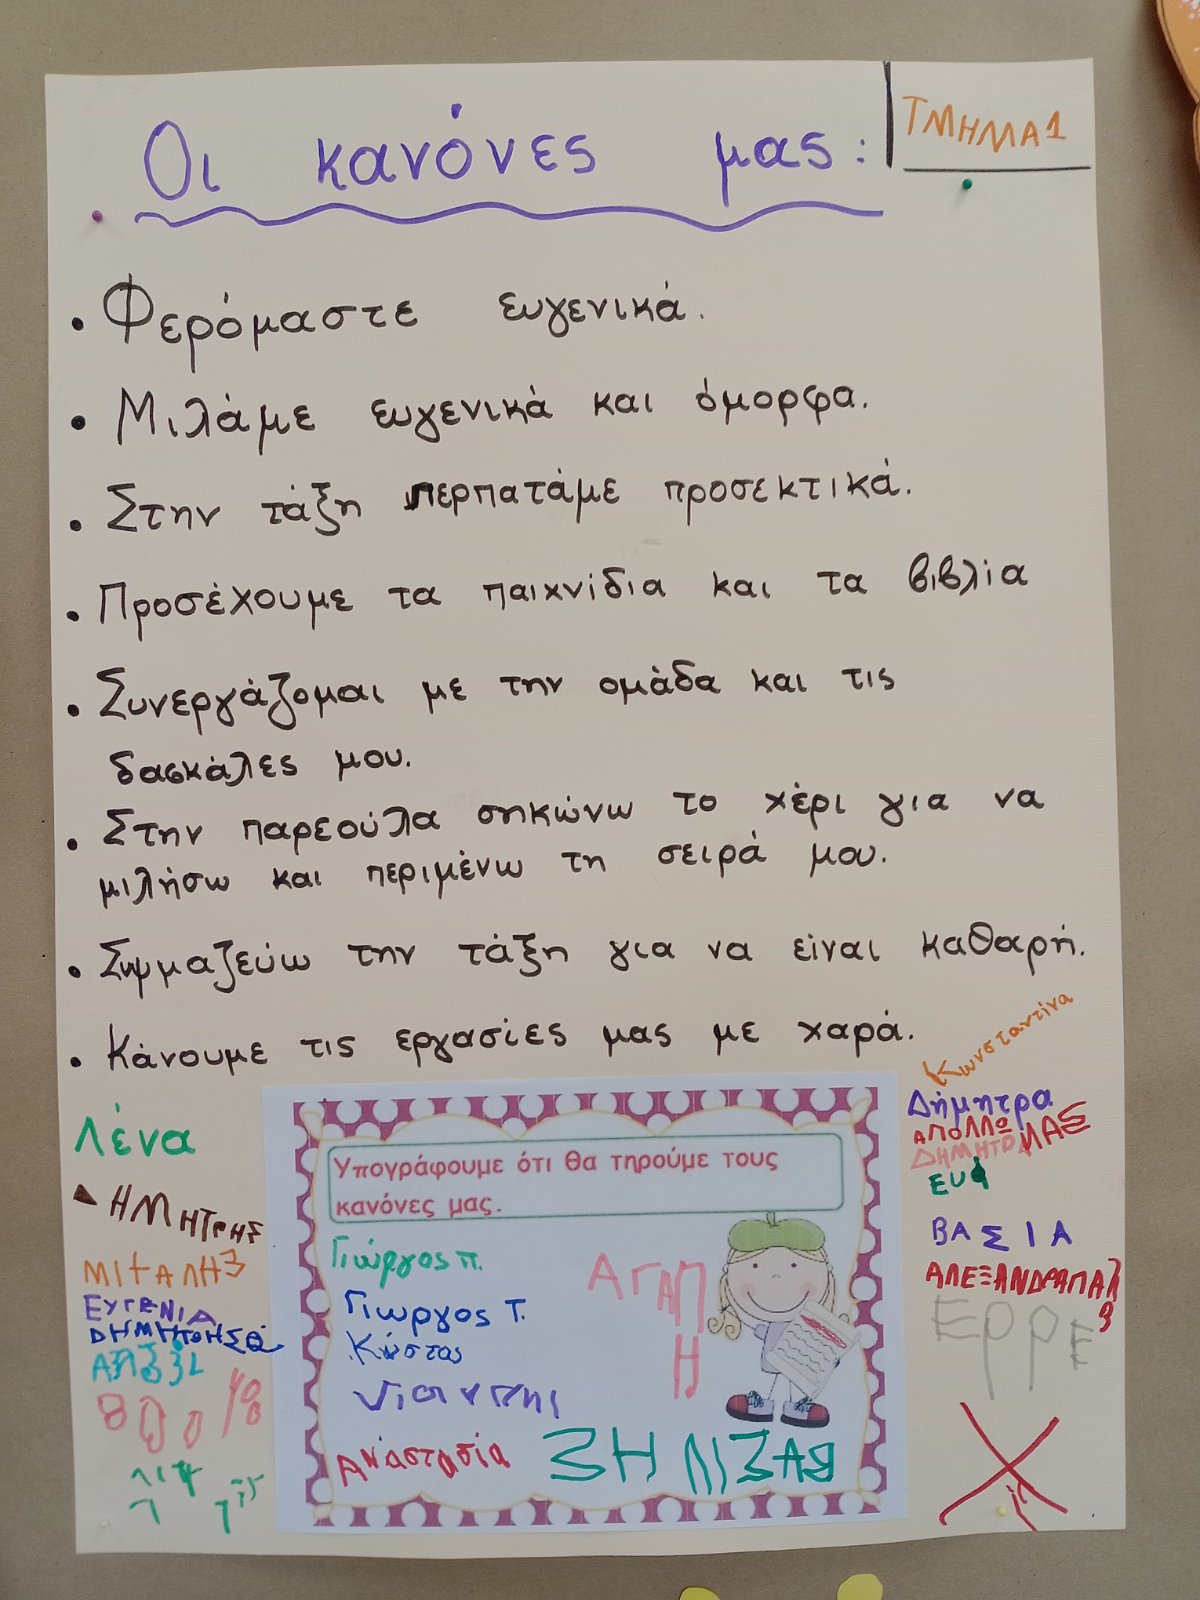 Οι κανόνες μας:
ΤΜΗΜΑ 1
• Φερόμαστε ευγενικά.
• Μιλάμε ευγενικά και όμορφα.
• Στην τάξη περπατάμε προσεκτικά.
• Προσέχουμε τα παιχνίδια και τα βιβλία
• Συνεργάζομαι με την ομάδα και τις
δασκάλες μου.
• Στην παρεούλα σηκώνω το χέρι για να
μιλήσω και περιμένω τη σειρά μου.
• Συμμαζεύω την τάξη για να είναι καθαρή.
• Κάνουμε τις εργασίες μας με χαρά.
Λένα
ΔΗΜΗΤΡΗΣ
ΕΥΓΕΝΙΑ
Υπογράφουμε ότι θα τηρούμε τους
κανόνες μας.
Γιώργος π.
Γιωργος Τ.
Κώστας
Αναστασία
ΑΓΑΠ
Η
Κωνσταντίνα
Δήμητρα
ΑΠΟΛΛΩ
ΒΑΣΙΑ
ΕΡΡΕ